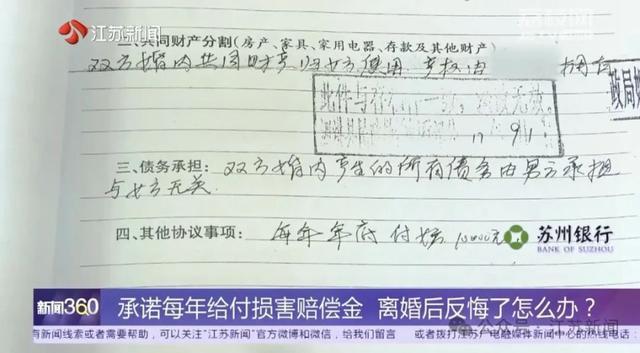 江苏新闻
荔枝网
二、共同财产分割(房产、家具、家用电器、存款及其他财产)
双方婚内共同财产归女方使用 产权由 拥有
此件与存 一致
政局
三、债务承担：双方婚内产生的所有债务由男方承担
与女方无关
四、其他协议事项：每年年底付给10000元
苏州银行
BANK OF SUZHOU
新闻360
承诺每年给付损害赔偿金 离婚后反悔了怎么办？
有新闻线索或者需要帮助，可以关注“江苏新闻”官方微博和微信，给我们留言 或者拨打江苏广电融媒体新闻中心的热线电话：
公众号·江苏新闻